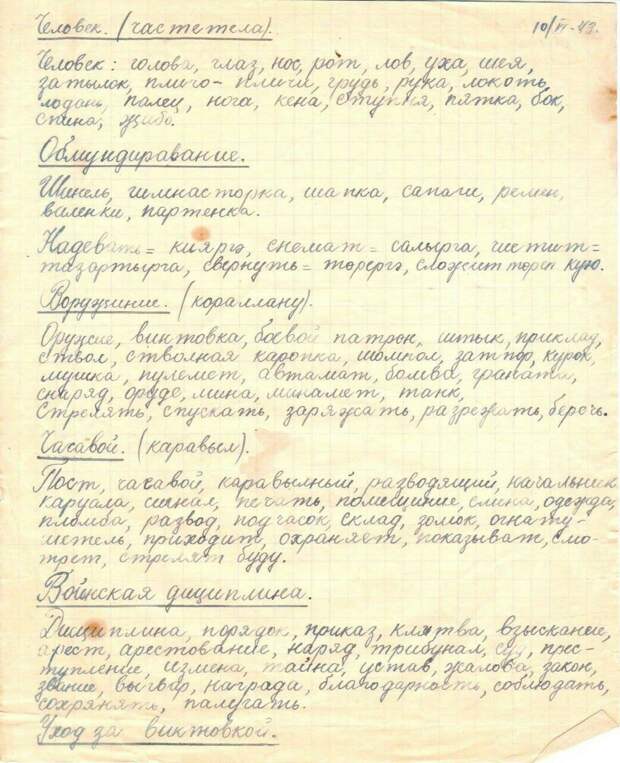 Человек. (частетела). 10/VI-43.
Человек: голова, глаз, нос, рот, лов, уха, шея,
затылок, пличо - пличи, грудь, рука, локоть,
лодань, палец, нога, кена, ступня, пятка, бок,
спина,
Обмундиравание.
Шинель, гимнасторка, шапка, сапаги, ремен,
виленки, партенка.
Надевать = кияргэ, снемат = салырга, чистит =
тазартырга, свернуть = төрергэ, сложит төреп кую.
Воружиние. (кораллану).
Оружие, винтовка, боевой патрон, штык, приклад,
ствол, стволная каропка, шомпол, затвор, курок,
мушка, пулемет, автамат, бомва, граната,
снаряд, оруде, мина, минамет, танк,
Стрелять, спускать, заряжать, разрежать, беročь.
Часавой. (каравыл).
Пост, часавой, каравылный, разводящий, начальник
каруала, сигнал, печать, помещиние, слина, одежда,
пломба, развод, подчасок, склад, зомок, огнату-
шетель, приходит, охраняет, показыват, смо-
трет, стрелят буду.
Воинская дициплина.
Дисциплина, порядок, приказ, клятва, взыскание,
арест, арестование, наряд, трибунал, суд, прес-
тупление, измена, тайна, устав, жалова, закон,
звание, выгвар, награда, благодарность, соблюдать,
сохрянять, палучать.
Уход за винтовкой.